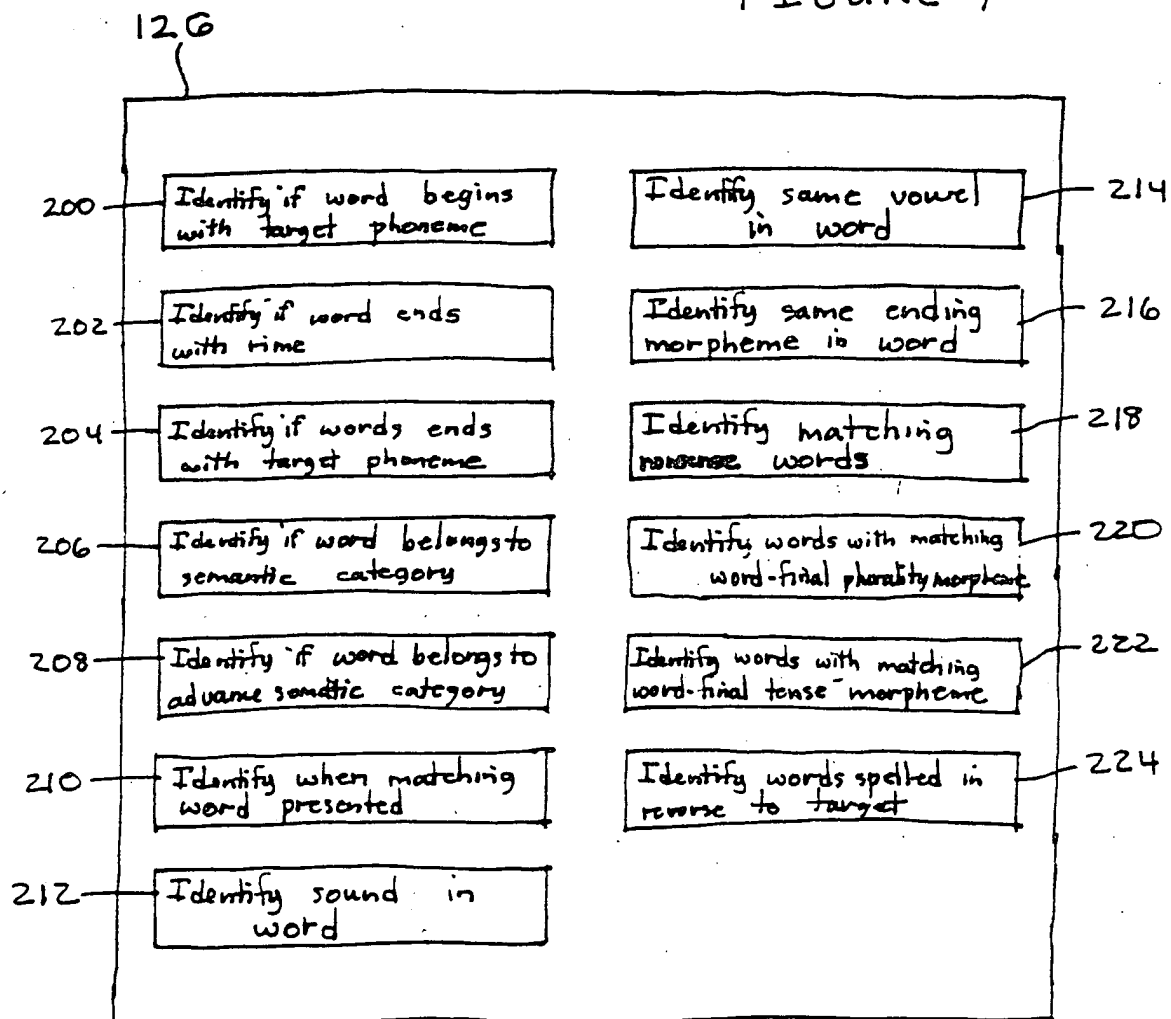 FIGURE
126
200
Identify if word begins
with target phoneme
202
Identify if word ends
with rime
204
Identify if words ends
with target phoneme
206
Identify if word belongs to
semantic category
208
Identify if word belongs to
advance somatic category
210
Identify when matching
word presented
212
Identify sound in
word
214
Identify same vowel
in word
216
Identify same ending
morpheme in word
218
Identify matching
nonsense words
220
Identify words with matching
word-final plurality morpheme
222
Identify words with matching
word-final tense morpheme
224
Identify words spelled in
reverse to target